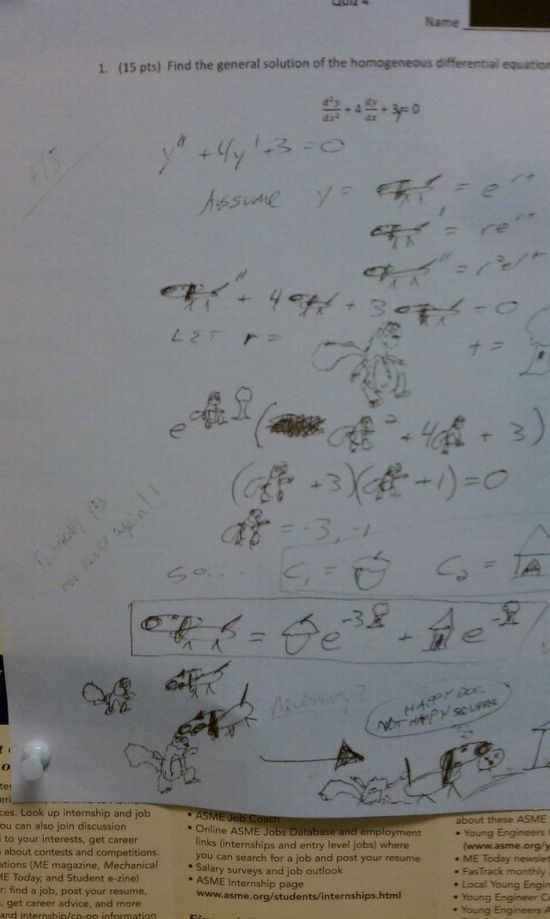 Quiz 4
Name
1. (15 pts) Find the general solution of the homogeneous differential equation
d²y/dx² + 4 dy/dx + 3y = 0
+15
y" + 4y' + 3 = 0
Assume y = = e^rt
' = re^rt
" = r²e^rt
" + 4 ' + 3 = 0
LET r = t =
e ( ² + 4 + 3)
( + 3)( + 1) = 0
= -3, -1
Technically yes
not never again!!
So... C₁ = C₂ =
= e^-3 + e^-
Necessary?
HAPPY DOG
NOT HAPPY SQUIRREL
ces. Look up internship and job
ou can also join discussion
l to your interests, get career
about contests and competitions.
ations (ME magazine, Mechanical
ME Today, and Student e-zine)
r: find a job, post your resume,
, get career advice, and more
and internship/co-op information
• ASME Job Coach
• Online ASME Jobs Database and employment
links (internships and entry level jobs) where
you can search for a job and post your resume
• Salary surveys and job outlook
• ASME Internship page
www.asme.org/students/internships.html
about these ASME
• Young Engineers
(www.asme.org/y
• ME Today newslet
• FasTrack monthly
• Local Young Engin
• Young Engineer C
• Young Engineers A